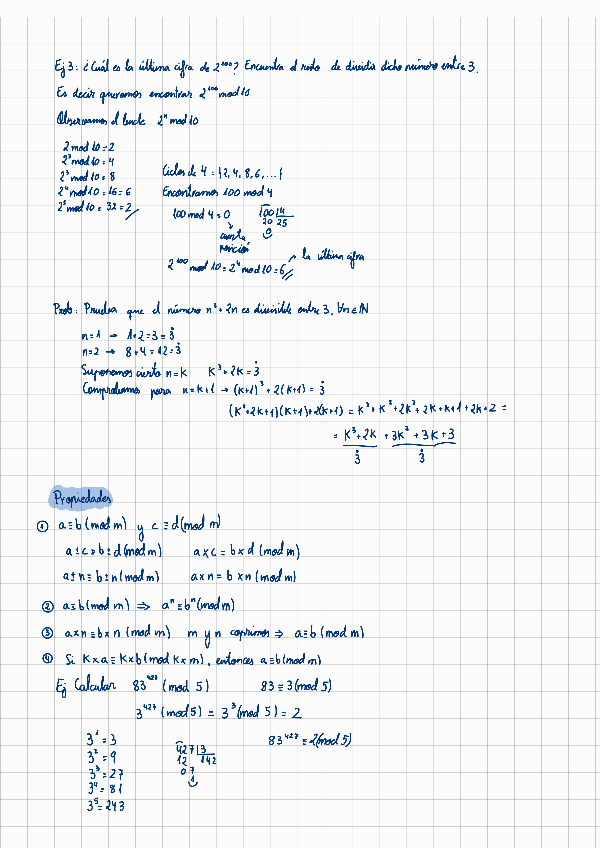 Ej 3: ¿Cuál es la última cifra de 2¹⁰⁰? Encuentra el resto de dividir dicho número entre 3.
Es decir queremos encontrar 2¹⁰⁰ mod 10
Observamos el bucle 2ⁿ mod 10
2 mod 10 = 2
2² mod 10 = 4
2³ mod 10 = 8
2⁴ mod 10 = 16 = 6
2⁵ mod 10 = 32 = 2
Ciclos de 4 = {2, 4, 8, 6, ...}
Encontramos 100 mod 4
100 mod 4 = 0
100 |4
20 25
0
cuarta
posición
2¹⁰⁰ mod 10 = 2⁴ mod 10 = 6 la última cifra
Prob: Prueba que el número n³ + 2n es divisible entre 3, ∀n ∈ ℕ
n = 1 → 1 + 2 = 3 = 3̇
n = 2 → 8 + 4 = 12 = 3̇
Suponemos cierto n = k k³ + 2k = 3̇
Comprobamos para n = k+1 → (k+1)³ + 2(k+1) = 3̇
(k²+2k+1)(k+1)+2(k+1) = k³ + k² + 2k² + 2k + k + 1 + 2k + 2 =
= k³ + 2k + 3k² + 3k + 3
3̇ 3̇
Propiedades
① a ≡ b (mod m) y c ≡ d (mod m)
a ± c ≡ b ± d (mod m) a × c ≡ b × d (mod m)
a ± n ≡ b ± n (mod m) a × n ≡ b × n (mod m)
② a ≡ b (mod m) ⇒ aⁿ ≡ bⁿ (mod m)
③ a × n ≡ b × n (mod m) m y n coprimos ⇒ a ≡ b (mod m)
④ Si k × a ≡ k × b (mod k × m), entonces a ≡ b (mod m)
Ej Calcular 83⁴²⁷ (mod 5) 83 ≡ 3 (mod 5)
3⁴²⁷ (mod 5) = 3³ (mod 5) = 2
3¹ = 3
3² = 9
3³ = 27
3⁴ = 81
3⁵ = 243
427 |3
12 142
07
1
83⁴²⁷ ≡ 2 (mod 5)